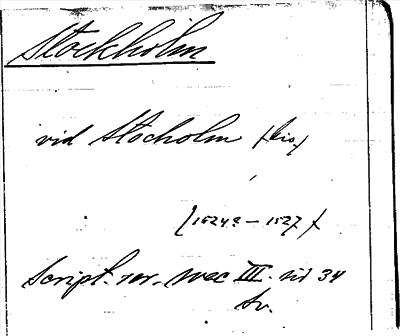 Stockholm
vid Stocholm (bis)
(1524? – 1527)
Script. rer. svec III. sid 34
Sv.